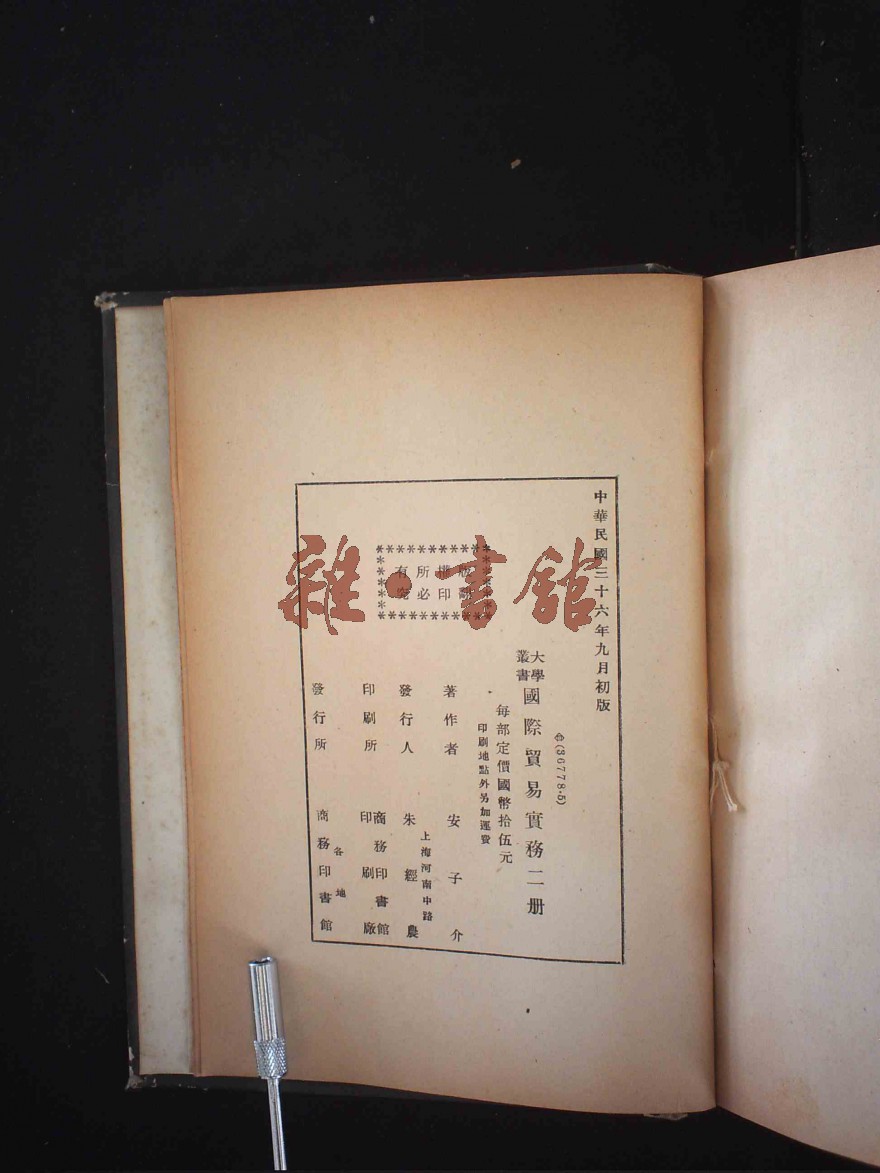 中華民國三十六年九月初版
(36778·5)
大學叢書 國際貿易實務二册
每部定價國幣拾伍元
印刷地點外另加運費
版權所有
翻印必究
著作者 安子介
上海河南中路
發行人 朱經農
印刷所 商務印書館印刷廠
各地
發行所 商務印書館
雜·書館